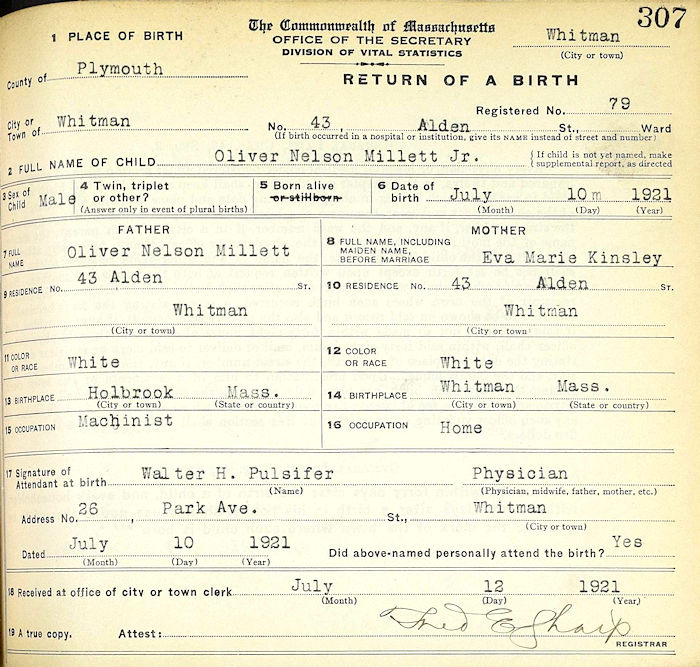 307
1 PLACE OF BIRTH
The Commonwealth of Massachusetts
OFFICE OF THE SECRETARY
DIVISION OF VITAL STATISTICS
Whitman
(City or town)
County of Plymouth
RETURN OF A BIRTH
Registered No. 79
City or Town of Whitman No. 43, Alden St., Ward
(If birth occurred in a hospital or institution, give its NAME instead of street and number)
2 FULL NAME OF CHILD Oliver Nelson Millett Jr. { If child is not yet named, make supplemental report, as directed
3 Sex of Child Male
4 Twin, triplet or other?
(Answer only in event of plural births)
5 Born alive or stillborn
6 Date of birth July 10m 1921
(Month) (Day) (Year)
FATHER
MOTHER
7 FULL NAME Oliver Nelson Millett
8 FULL NAME, INCLUDING MAIDEN NAME, BEFORE MARRIAGE Eva Marie Kinsley
9 RESIDENCE No. 43 Alden St.
10 RESIDENCE No. 43 Alden St.
Whitman
Whitman
(City or town)
(City or town)
11 COLOR OR RACE White
12 COLOR OR RACE White
13 BIRTHPLACE Holbrook Mass.
(City or town) (State or country)
14 BIRTHPLACE Whitman Mass.
(City or town) (State or country)
15 OCCUPATION Machinist
16 OCCUPATION Home
17 Signature of Attendant at birth Walter H. Pulsifer Physician
(Name) (Physician, midwife, father, mother, etc.)
Address No. 26, Park Ave. St., Whitman
(City or town)
Dated July 10 1921 Did above-named personally attend the birth? Yes
(Month) (Day) (Year)
18 Received at office of city or town clerk July 12 1921
(Month) (Day) (Year)
19 A true copy. Attest: Fred E Sharp
REGISTRAR